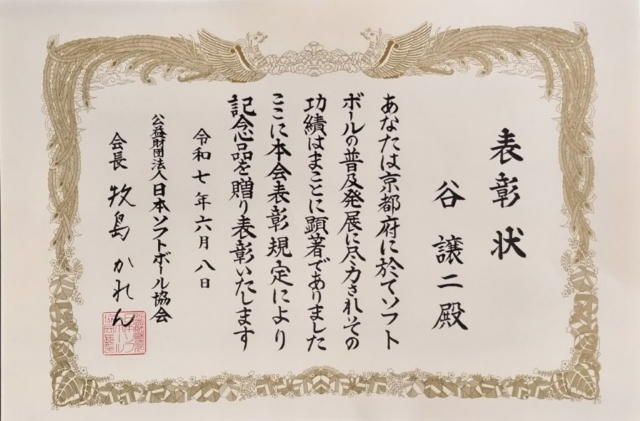 表彰状
谷 譲二殿
あなたは京都府に於てソフト
ボールの普及発展に尽力されその
功績はまことに顕著でありました
ここに本会表彰規定により
記念品を贈り表彰いたします
令和七年六月八日
公益財団法人日本ソフトボール協会
会長 牧島かれん